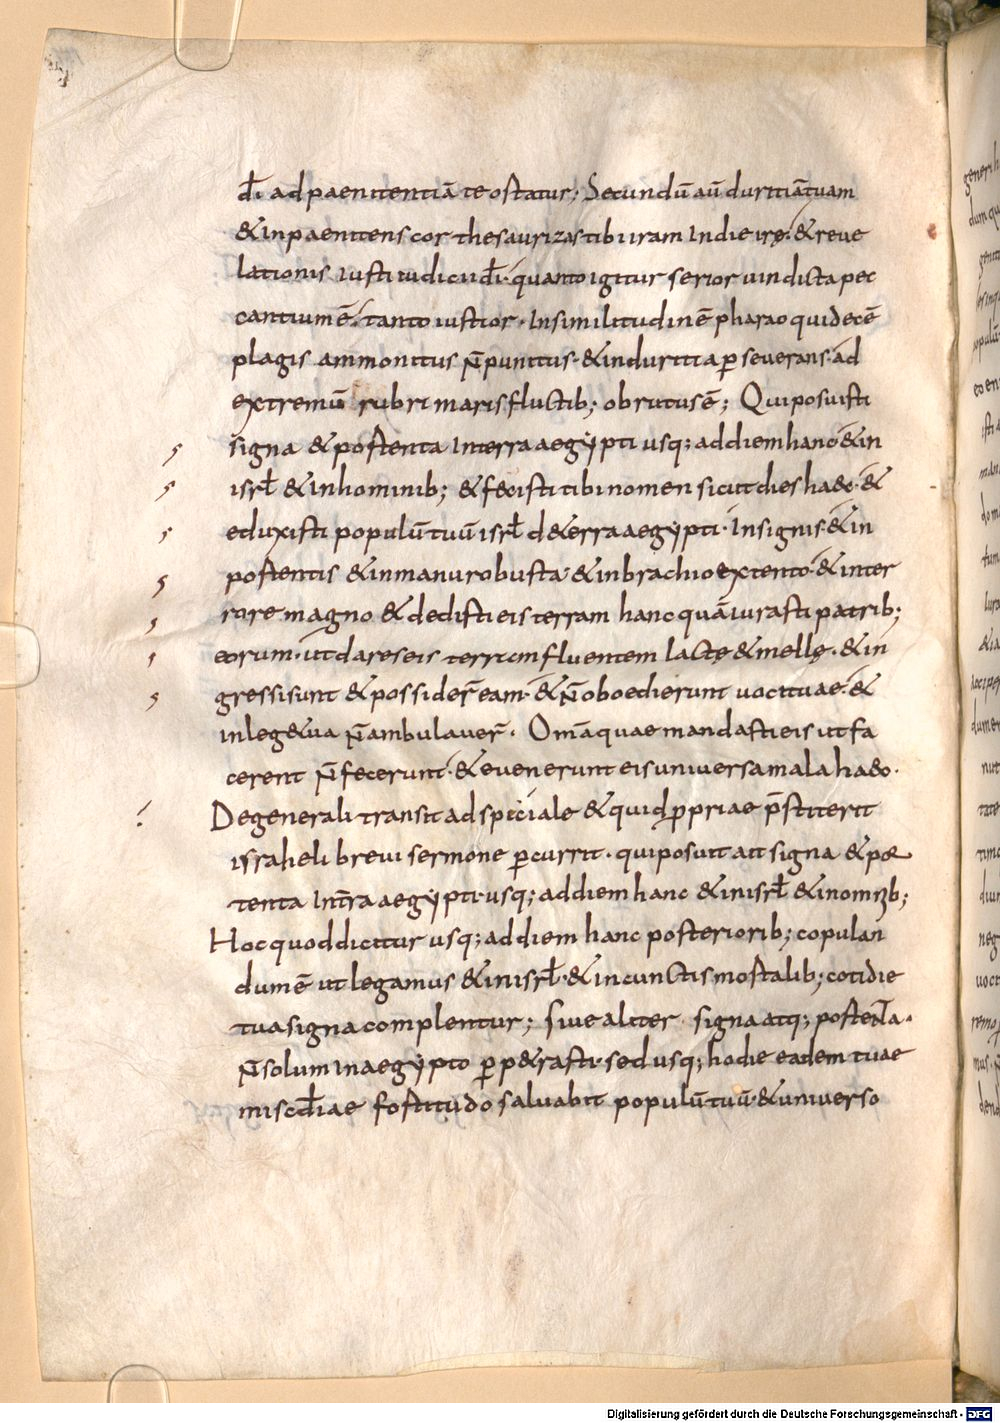 dī. ad paenitentiā te ostatur; Secundū aū duritiātuam
& inpaenitens cor thesaurizas tibi iram In die irę. & reve
lationis iusti iudicii dī. quanto igitur serior uindicta pec
cantium ē. tanto iustior. In similitudinē pharao qui decē
plagis ammonitus n̄ punitus. & induritia p̄ severans. ad
extremū rubri maris fluctib; obrutus ē; Qui posuisti
signa & postenta In terra aegẏpti usq; ad diem hanc & in
isrl̄ & in hominib; & fecisti tibi nomen sicut dies haec. &
eduxisti populū tuū isrl̄ d& erra aegẏpti. In signis. & in
postentis & in manu robusta & in brachio extento. & inter
rore magno & dedisti eis terram hanc quā iurasti patrib;
eorum. ut dares eis terram fluentem lacte & mellę. & in
gressi sunt & possider̄ eam. & n̄ oboedierunt uoci tuae. &
in leg& ua n̄ ambulauer̄. Om̄a quae mandasti eis ut fa
cerent n̄ fecerunt. & evenerunt eis universa mala haec.
De generali transit ad speciale & quid p̄priae p̄stiterit
israheli brevi sermone p̄currit. qui posuit ait signa & por
tenta Int̄ra aegẏpti. usq; ad diem hanc & in isrl̄ & in omīb;
Hoc quod dicitur usq; ad diem hanc posteriorib; copulan
dum ē ut legamus & in isrl̄. & in cunctis mostalib; cotidie
tua signa complentur; sive aliter signa atq; postenta.
n̄ solum in aegẏpto p̄p&rasti. sed usq; hodie eadem tuae
miscd̄iae fostitudo salvabit populū tuū. & universo
generi h
dum qu
Digitalisierung gefördert durch die Deutsche Forschungsgemeinschaft - DFG